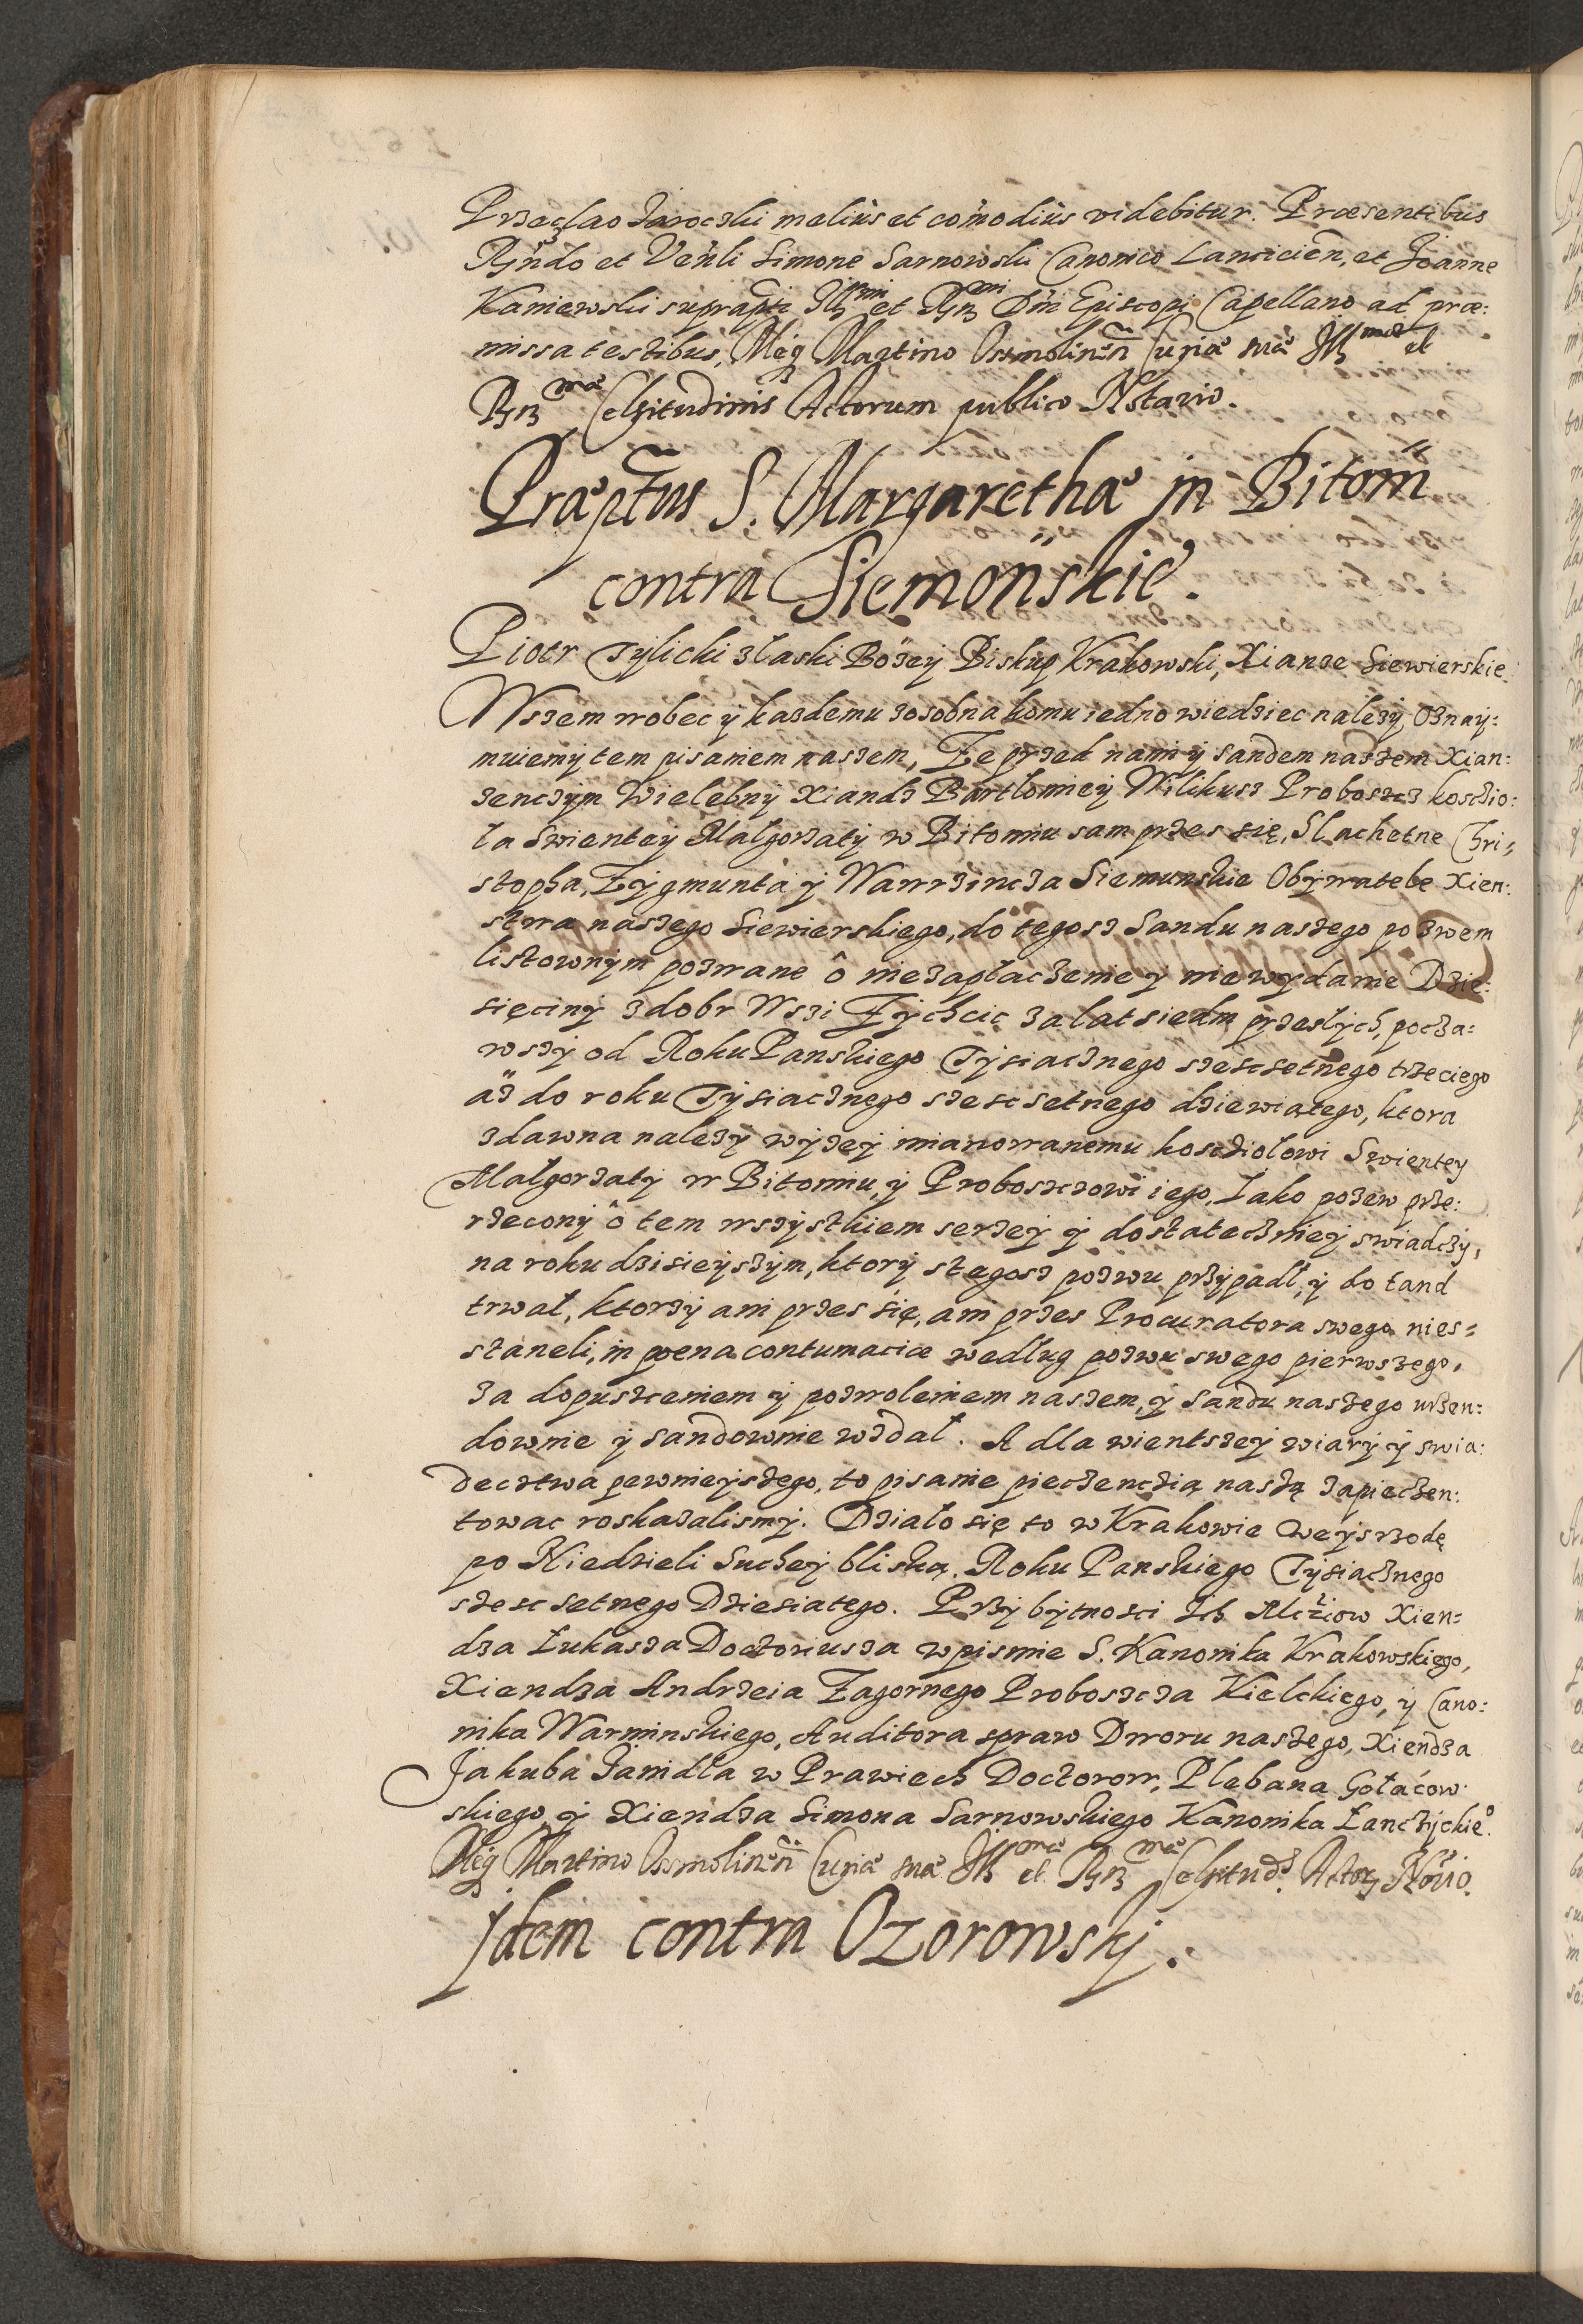 Przeclao Jaroczki melius et comodius videbitur. Præsentibus
Rndo et Venli Simone Sarnowski Canonico Lanicien, et Joanne
Kaniewski suprapti Illmi et Rmi Dni Episcopi Capellano ad præ:
missa testibus, Meq Martino Osmolinen Curiæ suæ Illmæ et
Rmæ Celsitudinis Actorum publico Notario.
Præptus S. Margarethæ in Bitom
contra Siemonskie.
Piotr Tylicki z łaski Bożey Biskup Krakowski, Xianze Siewierskie.
Wszem wobec y kazdemu zosobna komu iedno wiedziec nalezy, Oznay:
muiemy tem pisaniem naszem, Ze przed nami y Sandem naszem Xian:
zenczym Wielebny Xiandz Bartlomiey Wilikusz Proboszcz koscio:
ła Swientey Malgorzaty w Bitomiu sam przes się, Slachetne Chri:
stopha, Zygmunta y Wawrzincza Siemunskie Obywatele Xien:
stwa naszego Siewierskiego, do tegosz Sandu naszego pozwem
listownym pozwane ô niezapłaczenie y niewydanie Dzie:
sięciny z dobr Wszi Zychcic za lat siedm przeslych, pocza:
wszy od Roku Panskiego Tysiacznego szescsetnego trzeciego
aż do roku Tysiacznego szescsetnego dziewiątego, ktora
zdawna nalezy wyzey mianowanemu kosciolowi Swientey
Malgorzaty w Bitomiu, y Proboszczowi iego, Iako pozew prze:
rzeczony ô tem wszystkiem serzey y dostateczniey swiadczy,
na roku dzisieyszym, ktory z tegosz pozwu przypadł, y do tand
trwał, ktorzy ani przes się, ani przes Procuratora swego nies:
staneli, in poena contumaciæ według pozwu swego pierwszego,
za dopuszceniem y pozwoleniem naszem, y Sandu naszego urzen:
downie y sandownie wzdał. A dla wientszey wiary y swia:
dectwa pewnieyszego, to pisanie pieczenczią naszą zapieczen:
towac roskazalismy. Działo się to w Krakowie We ysrzodę
po Niedzieli Suchey bliską. Roku Panskiego Tysiacznego
szescsetnego Dziesiatego. Przy bytnosci Ich Mciow Xien:
dza Łukasza Doctoriusza w pismie S. Kanonika Krakowskiego,
Xiendza Andrzeia Zagornego Proboszcza Kielckiego, y Cano:
nika Warminskiego, Auditora spraw Dworu naszego, Xiendza
Jakuba Janidła w Prawiech Doctorow, Plebana Gołaćow
skiego, y Xiendza Simona Sarnowskiego Kanonika Łanczyckie°.
Meq Martino Osmolinen Curiæ suæ Illmæ et Rmæ Celsitud. Actor Notrio.
Idem contra Ozorowskj.